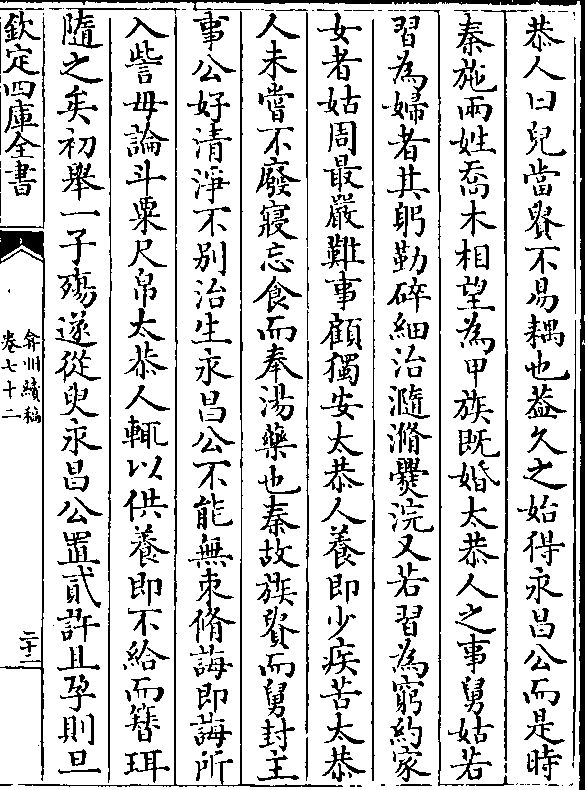 恭人曰兒當貴不易耦也葢久之始得永昌公而是時
秦施兩姓喬木相望為甲族既婚太恭人之事舅姑若
習為婦者其躬勤碎細治瀡滫爨浣又若習為窮約家
女者姑周最嚴難事顧獨安太恭人養即少疾苦太恭
人未嘗不廢寢忘食而奉湯藥也秦故族貲而舅封主
事公好清淨不别治生永昌公不能無束脩誨即誨所
入訾毋論斗粟尺帛太恭人輒以供養即不給而簪珥
隨之矣初舉一子殤遂從臾永昌公置貳許且孕則旦
欽定四庫全書
弇州續稿
卷七十二
二十二